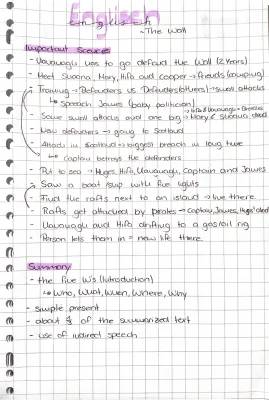 Englisch
English
~The Wall
Important Scenes
- Kavanagh has to go defend the Wall (2 Years)
- Meet Suona, Mary, Hifa and Cooper → friends (camping)
- Training → Defenders vs Defenders/others → small attacks
↳ speech James (baby politician)
- Some small attacks and one big → Mary & Shoona died
- New defenders → going to Scotland
- Attack in Scotland → biggest breach in long time
↳ captain betrays the defenders
- Put to sea → Hughes, Hifa, Kavanagh, Captain and James
- Saw a boat/ship with five lights
- Find the rafts next to an island → live there
- Rafts get attacked by pirates → Captain, James, Hughes died
- Kavanagh and Hifa drifting to a gas/oil rig
- Person lets them in = new life there
Summary
- the five W's (Introduction)
↳ Who, What, When, Where, Why
- simple present
- about of the summarized text
- use of indirect speech